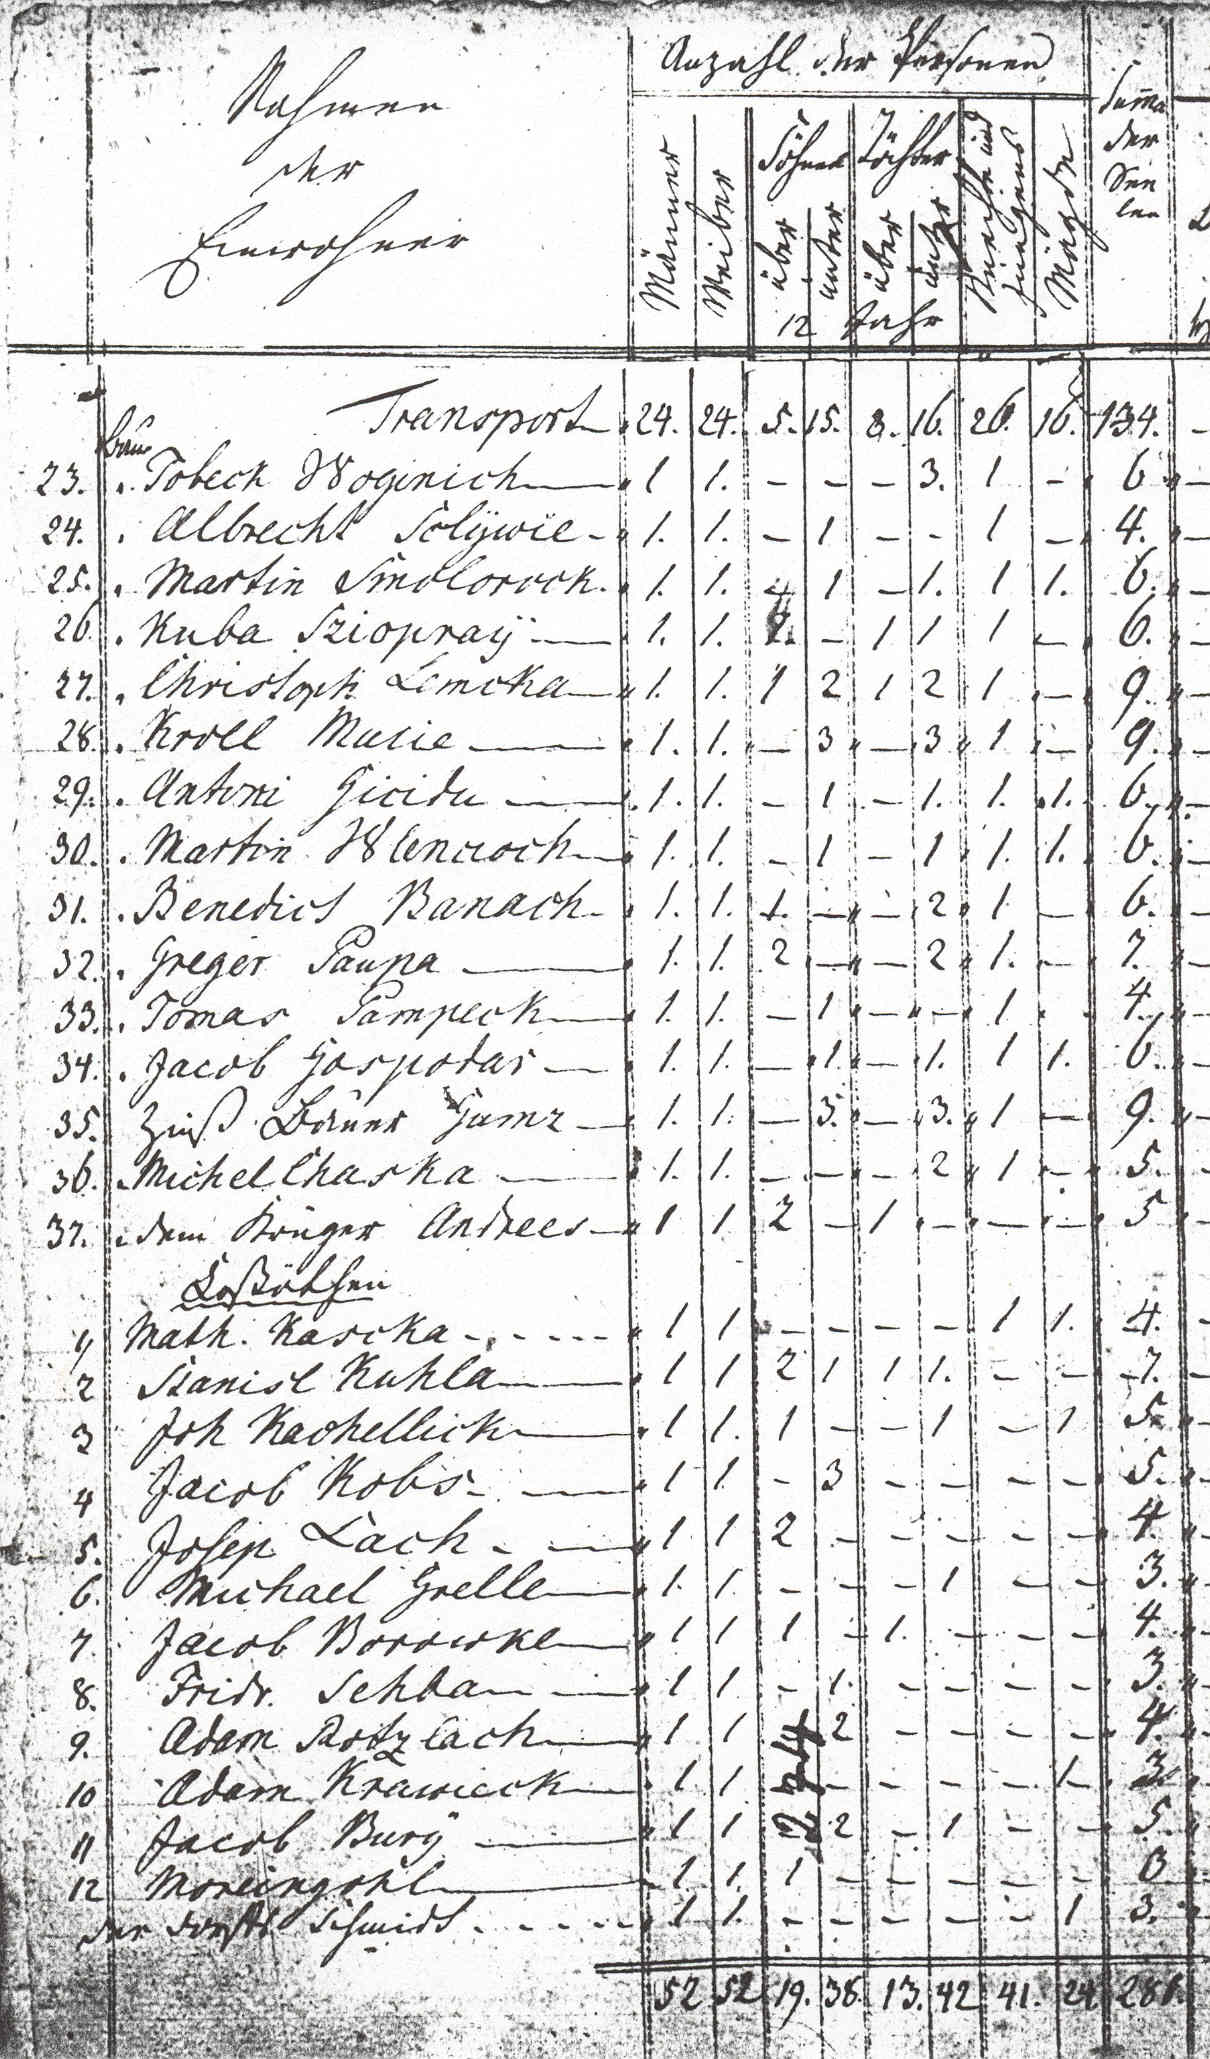 Anzahl der Personen
Nahmen
der
Einwohner
Männer
Weiber
Söhne
Töchter
über
unter
über
unter
12 Jahr
Knechte und
Jungens
Mägde
Summa
der
See
len
Transport 24. 24. 5. 15. 8. 16. 26. 16. 134.
23. Tobeck Woginich 1 1. - - - 3. 1 - 6
24. Albrecht Solÿwie 1. 1. - 1 - - 1 - 4.
25. Martin Smolorock 1. 1. - 1 - 1. 1 1. 6.
26. Kuba Sziopraÿ 1. 1. 1. - 1 1 1 - 6.
27. Christoph Lemcka 1. 1. 1 2 1 2 1 - 9.
28. Kroll Musie 1. 1. - 3 - 3 1 - 9.
29. Antoni Gicidu 1. 1. - 1 - 1. 1. 1. 6.
30. Martin Wlencioch 1. 1. - 1 - 1 1. 1. 6.
31. Benedict Banach 1. 1. 1. - - 2 1 - 6.
32. Greger Paupa 1. 1. 2 - - 2 1. - 7.
33. Tomas Pampeck 1. 1. - 1 - - 1 - 4.
34. Jacob Gospodar 1. 1. - 1. - 1. 1 1. 6.
35. Zinß Bauer Gumz 1. 1. - 3. - 3. 1 - 9.
36. Michel Chaska 1. 1. - - - 2 1 - 5.
37. dem Krüger Andrees 1 1 2 - 1 - - - 5
Koßäthen
1 Math. Kascka 1 1 - - - - 1 1. 4.
2 Stanisl Kuhla 1 1 2 1 1 1. - - 7.
3 Joh Kachellick 1 1. 1 - - 1 - 1 5
4 Jacob Kobs 1 1. - 3 - - - - 5.
5. Josep Lach 1 1 2 - - - - - 4.
6. Michael Grelle 1. 1. - - - 1 - - 3.
7. Jacob Borowke 1 1 1 - 1. - - - 4.
8. Fridr. Sehba 1 1 - 1. - - - - 3.
9. Adam Rotzlach 1 1 2 - - - - 4.
10 Adam Krawieck 1 1 - - - - 1 3
11 Jacob Burÿ 1 1 2 - 1 - - 5.
12 Moreingohl 1 1. 1 - - - - - 3
der Schmidt 1 1. - - - - - 1 3.
52 52 19. 38. 13. 42 41. 24 281.